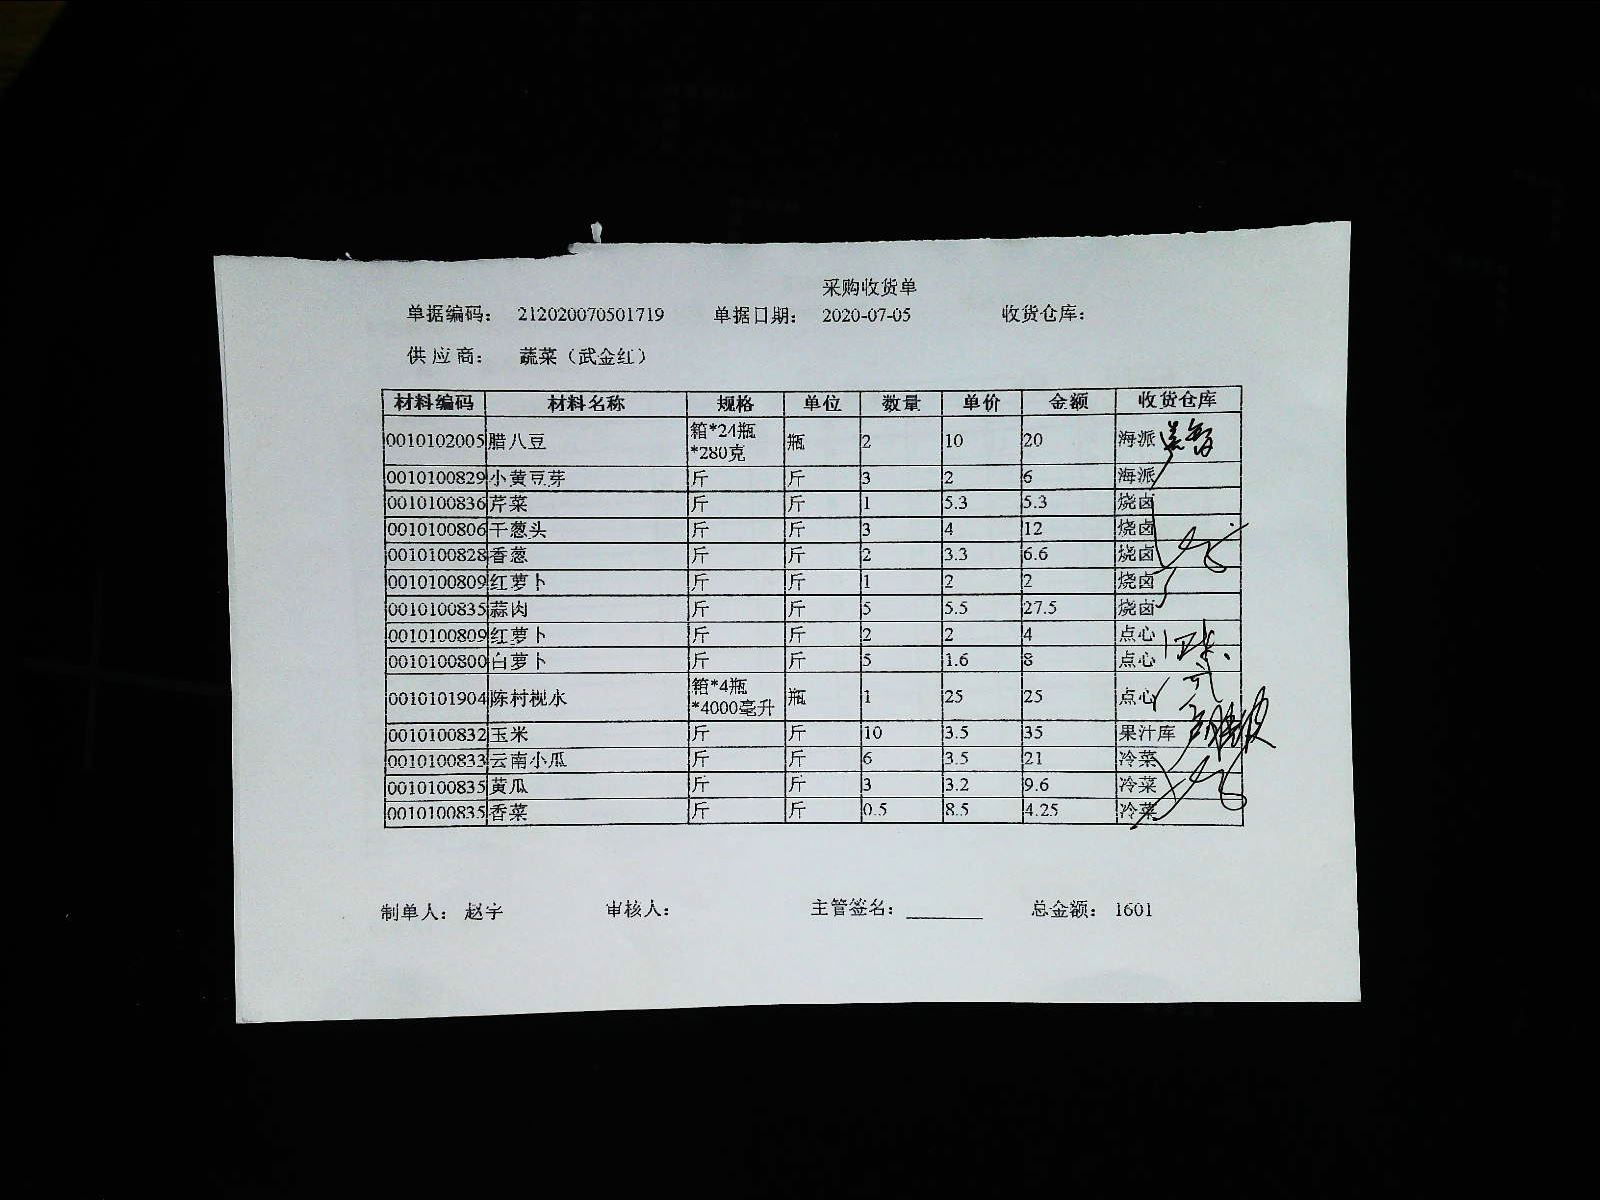 采购收货单
单据编码： 212020070501719 单据日期： 2020-07-05 收货仓库：
供 应 商： 蔬菜（武金红）
材料编码 材料名称 规格 单位 数量 单价 金额 收货仓库
0010102005 腊八豆 箱*24瓶*280克 瓶 2 10 20 海派
0010100829 小黄豆芽 斤 斤 3 2 6 海派
0010100836 芹菜 斤 斤 1 5.3 5.3 烧卤
0010100806 干葱头 斤 斤 3 4 12 烧卤
0010100828 香葱 斤 斤 2 3.3 6.6 烧卤
0010100809 红萝卜 斤 斤 1 2 2 烧卤
0010100835 蒜肉 斤 斤 5 5.5 27.5 烧卤
0010100809 红萝卜 斤 斤 2 2 4 点心
0010100800 白萝卜 斤 斤 5 1.6 8 点心
0010101904 陈村枧水 箱*4瓶*4000毫升 瓶 1 25 25 点心
0010100832 玉米 斤 斤 10 3.5 35 果汁库
0010100833 云南小瓜 斤 斤 6 3.5 21 冷菜
0010100835 黄瓜 斤 斤 3 3.2 9.6 冷菜
0010100835 香菜 斤 斤 0.5 8.5 4.25 冷菜
制单人： 赵宇 审核人： 主管签名： 总金额： 1601